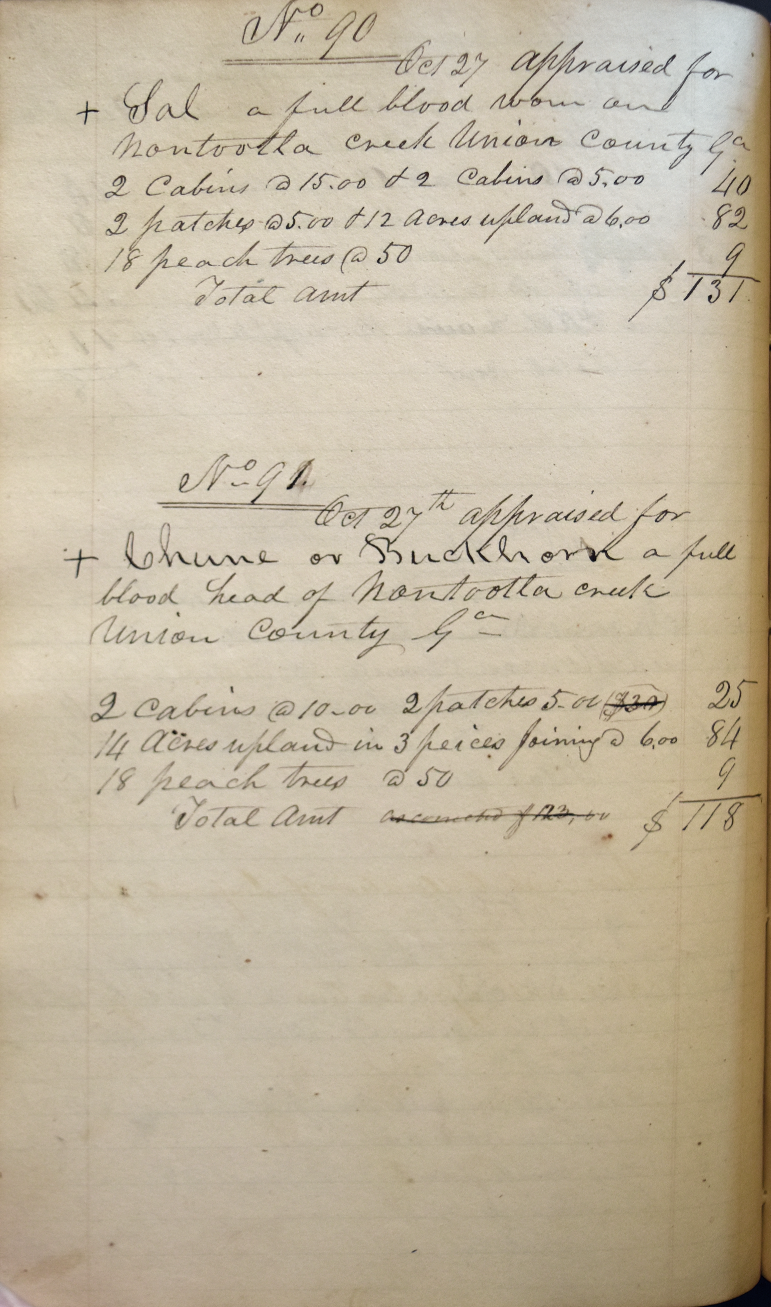 No 90
Oct 27 appraised for
+ Sal a full blood wom on
Nontootla creek Union County Ga
2 Cabins @ 15.00 & 2 Cabins @ 5.00 40
2 patches @ 5.00 & 12 Acres upland @ 6.00 82
18 peach trees @ 50 9
Total Amt $131
No 91.
Oct 27th appraised for
+ Chune or Buckhorn a full
blood head of Nontootla creek
Union County Ga
2 Cabins @ 10.00 2 patches 5.00 ($30) 25
14 Acres upland in 3 peices joining @ 6.00 84
18 peach trees @ 50 9
Total Amt $118